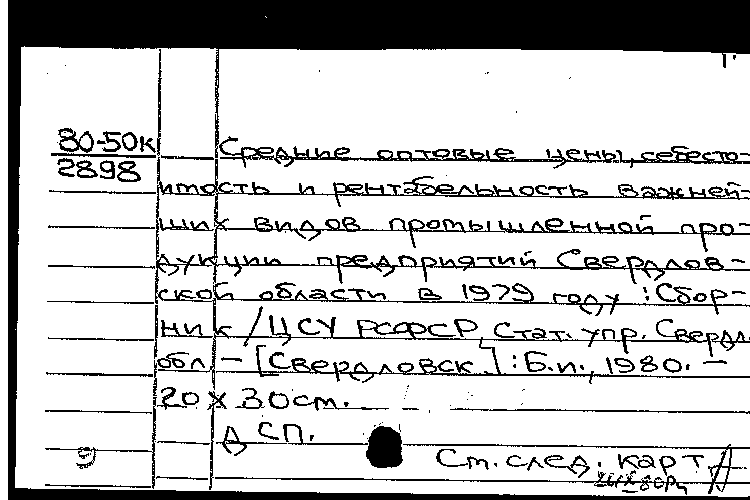 80-50к
2898
Средние оптовые цены, себесто-
имость и рентабельность важней-
ших видов промышленной про-
дукции предприятий Свердлов-
ской области в 1979 году : Сбор-
ник / ЦСУ РСФСР, Стат. упр. Свердл.
обл. - [Свердловск.] : Б.и., 1980. -
20 х 30 см.
ДСП.
Ст. след. карт.